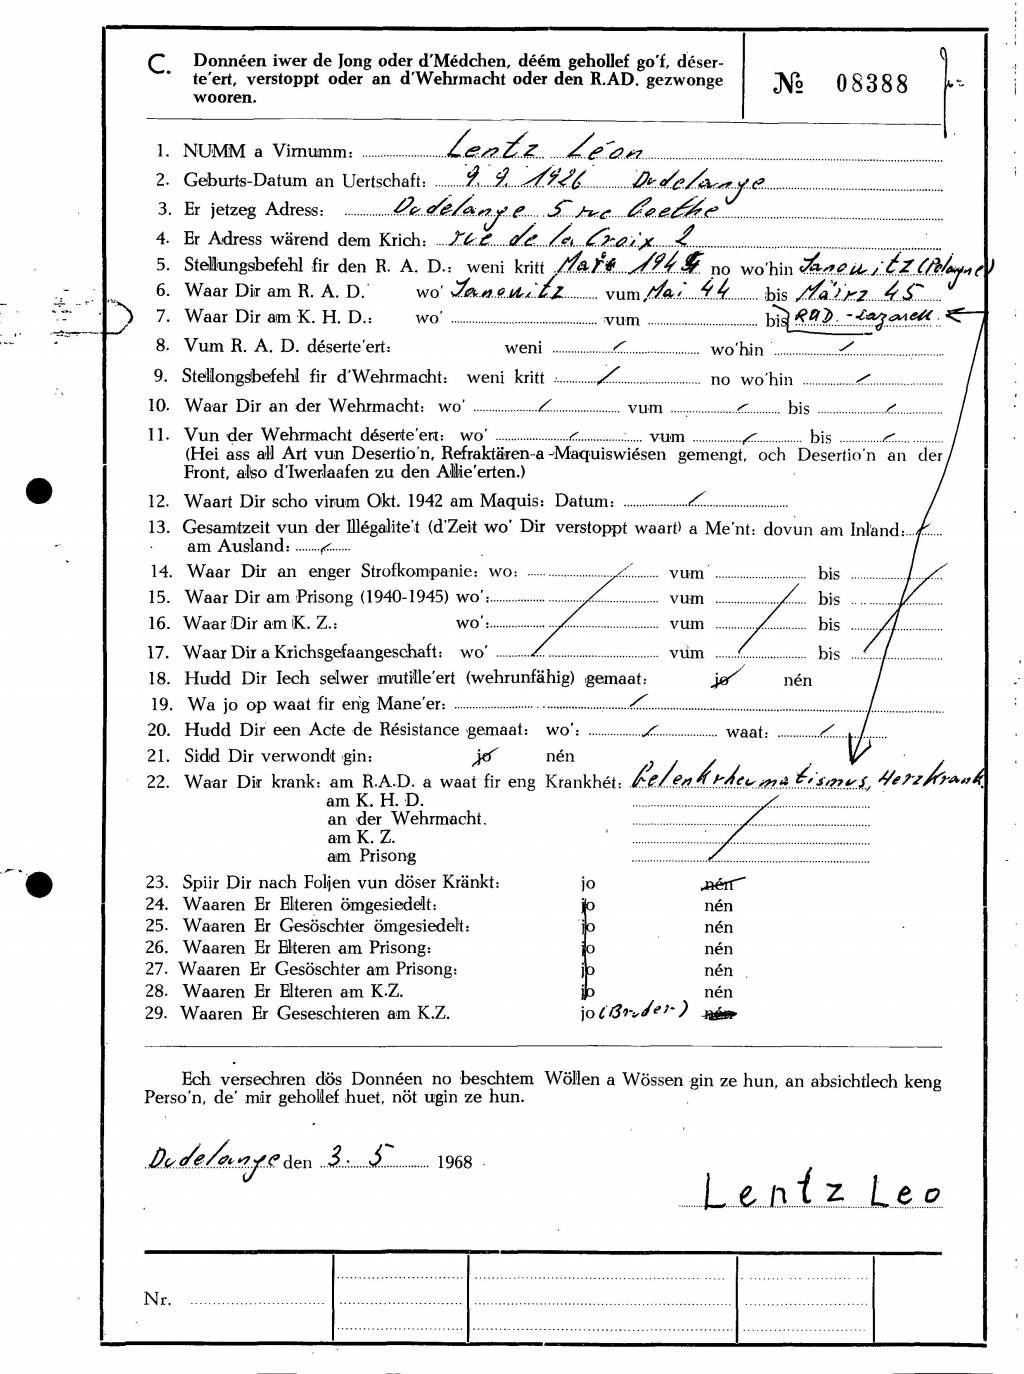 C. Donnéen iwer de Jong oder d'Médchen, déém gehollef go'f, déser-
te'ert, verstoppt oder an d'Wehrmacht oder den R.AD. gezwonge
wooren.
№ 08388
1. NUMM a Virnumm: Lentz Léon
2. Geburts-Datum an Uertschaft: 9. 9. 1926 Dudelange
3. Er jetzeg Adress: Dudelange 5 rue Goethe
4. Er Adress wärend dem Krich: rue de la Croix 2
5. Stellungsbefehl fir den R. A. D.: weni kritt 1944 no wo'hin Janowitz (Pologne)
6. Waar Dir am R. A. D. wo' Janowitz vum Mai 44 bis März 45
7. Waar Dir am K. H. D.: wo' vum bis RAD.-Lazarett
8. Vum R. A. D. déserte'ert: weni / wo'hin /
9. Stellongsbefehl fir d'Wehrmacht: weni kritt / no wo'hin /
10. Waar Dir an der Wehrmacht: wo' / vum / bis /
11. Vun der Wehrmacht déserte'ert: wo' / vum / bis /
(Hei ass all Art vun Desertio'n, Refraktären-a-Maquiswiésen gemengt, och Desertio'n an der
Front, also d'Iwerlaafen zu den Allie'erten.)
12. Waart Dir scho virum Okt. 1942 am Maquis: Datum: /
13. Gesamtzeit vun der Illégalite't (d'Zeit wo' Dir verstoppt waart) a Me'nt: dovun am Inland: /
am Ausland: /
14. Waar Dir an enger Strofkompanie: wo: vum bis
15. Waar Dir am Prisong (1940-1945) wo': vum bis
16. Waar Dir am K. Z.: wo': vum bis
17. Waar Dir a Krichsgefaangeschaft: wo' vum bis
18. Hudd Dir Iech selwer mutille'ert (wehrunfähig) gemaat: jo nén
19. Wa jo op waat fir eng Mane'er: /
20. Hudd Dir een Acte de Résistance gemaat: wo': / waat: /
21. Sidd Dir verwondt gin: jo nén
22. Waar Dir krank: am R.A.D. a waat fir eng Krankhét: Gelenkrheumatismus, Herzkrank
am K. H. D.
an der Wehrmacht.
am K. Z.
am Prisong
23. Spiir Dir nach Foljen vun döser Kränkt: jo nén
24. Waaren Er Elteren ömgesiedelt: jo nén
25. Waaren Er Gesöschter ömgesiedelt: jo nén
26. Waaren Er Elteren am Prisong: jo nén
27. Waaren Er Gesöschter am Prisong: jo nén
28. Waaren Er Elteren am K.Z. jo nén
29. Waaren Er Geseschteren am K.Z. jo (Bruder) nén
Ech versechren dös Donnéen no beschtem Wöllen a Wössen gin ze hun, an absichtlech keng
Perso'n, de' mir gehollef huet, nöt ugin ze hun.
Dudelange den 3. 5 1968
Lentz Leo
Nr.